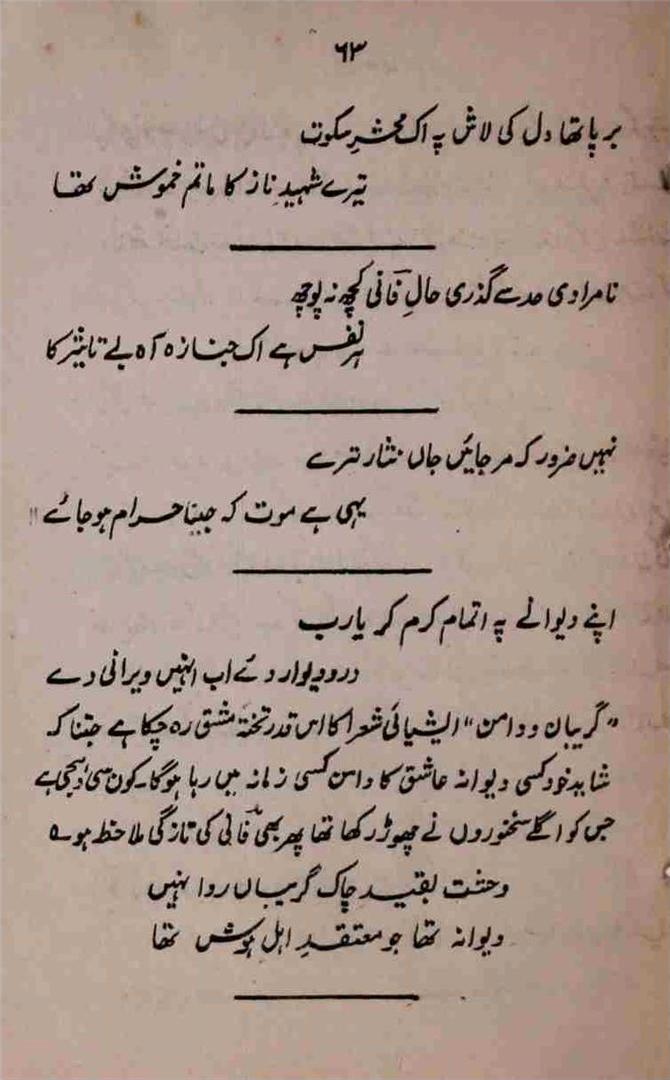 ۶۳
برپا تھا دل کی لاش پہ اک محشرِ سکوت
تیرے شہیدِ ناز کا ماتم خموش تھا
نامرادی حد سے گذری حالِ فانیؔ کچھ نہ پوچھ
ہر نفس ہے اک جنازہ آہ بے تاثیر کا
نہیں ضرور کہ مر جائیں جاں نثار ترے
یہی ہے موت کہ جینا حرام ہو جائے !!
اپنے دیوانے پہ اتمام کرم کر یارب
در و دیوار دئے اب انہیں ویرانی دے
"گریبان و دامن" ایشیائی شعرا کا اس قدر تختۂ مشق رہ چکا ہے جتنا کہ
شاید خود کسی دیوانہ عاشق کا دامن کسی زمانہ میں رہا ہوگا۔ کون سی دھجی ہے
جس کو اگلے سخنوروں نے چھوڑ رکھا تھا پھر بھی فانیؔ کی تازگی ملاحظہ ہو ؂
وحشت بقید چاک گریباں روا نہیں
دیوانہ تھا جو معتقدِ اہل ہوش تھا